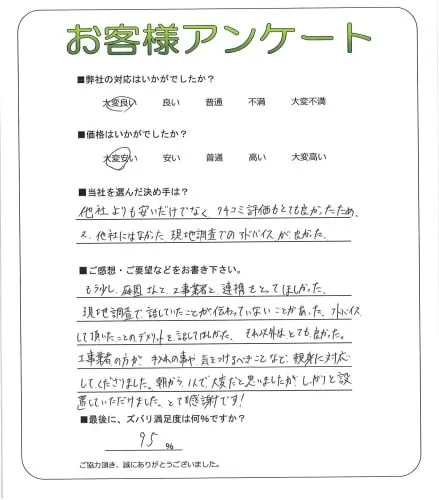 お客様アンケート
■弊社の対応はいかがでしたか?
大変良い 良い 普通 不満 大変不満
■価格はいかがでしたか?
大変安い 安い 普通 高い 大変高い
■当社を選んだ決め手は?
他社よりも安いだけでなく、クチコミ評価もとても良かったため。
又、他社にはなかった現地調査でのアドバイスが良かった。
■ご感想・ご要望などをお書き下さい。
もう少し、庭園さんと、工事業者と連携をとってほしかった。
現地調査で話していたことが伝わっていないことがあった。アドバイス
して頂いたことのデメリットを話してほしかた。それ以外はとても良かった。
工事業者の方が、われの事や気をつけるべきことなど、親身に対応
してくださりました。朝から1人で大変だと思いましたが、しっかりと設
置していただけました。とても感謝です!
■最後に、ズバリ満足度は何%ですか?
95 %
ご協力頂き、誠にありがとうございました。